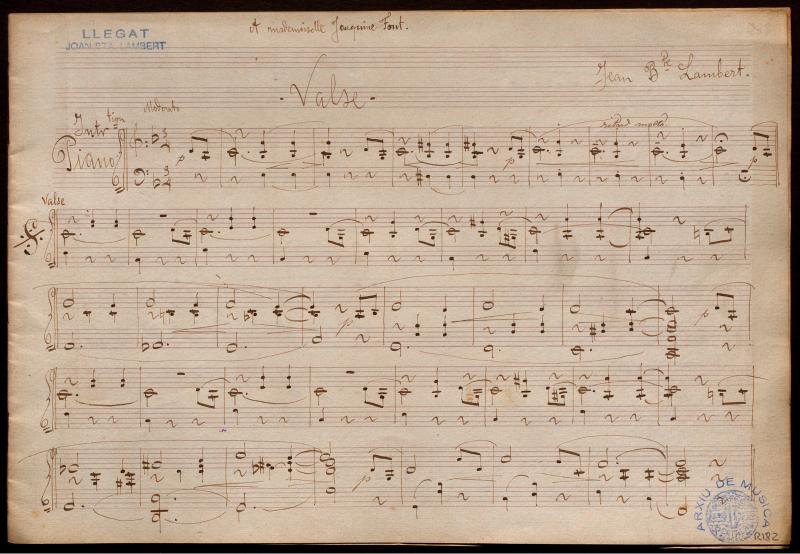 LLEGAT
JOAN BTA. LAMBERT
A mademoiselle Joaquine Font.
Jean B^te Lambert.
· Valse ·
Moderato
Intr^tion
Piano
p
molto
Valse
p
p
p
p
p
p
ARXIU DE MUSICA
R182